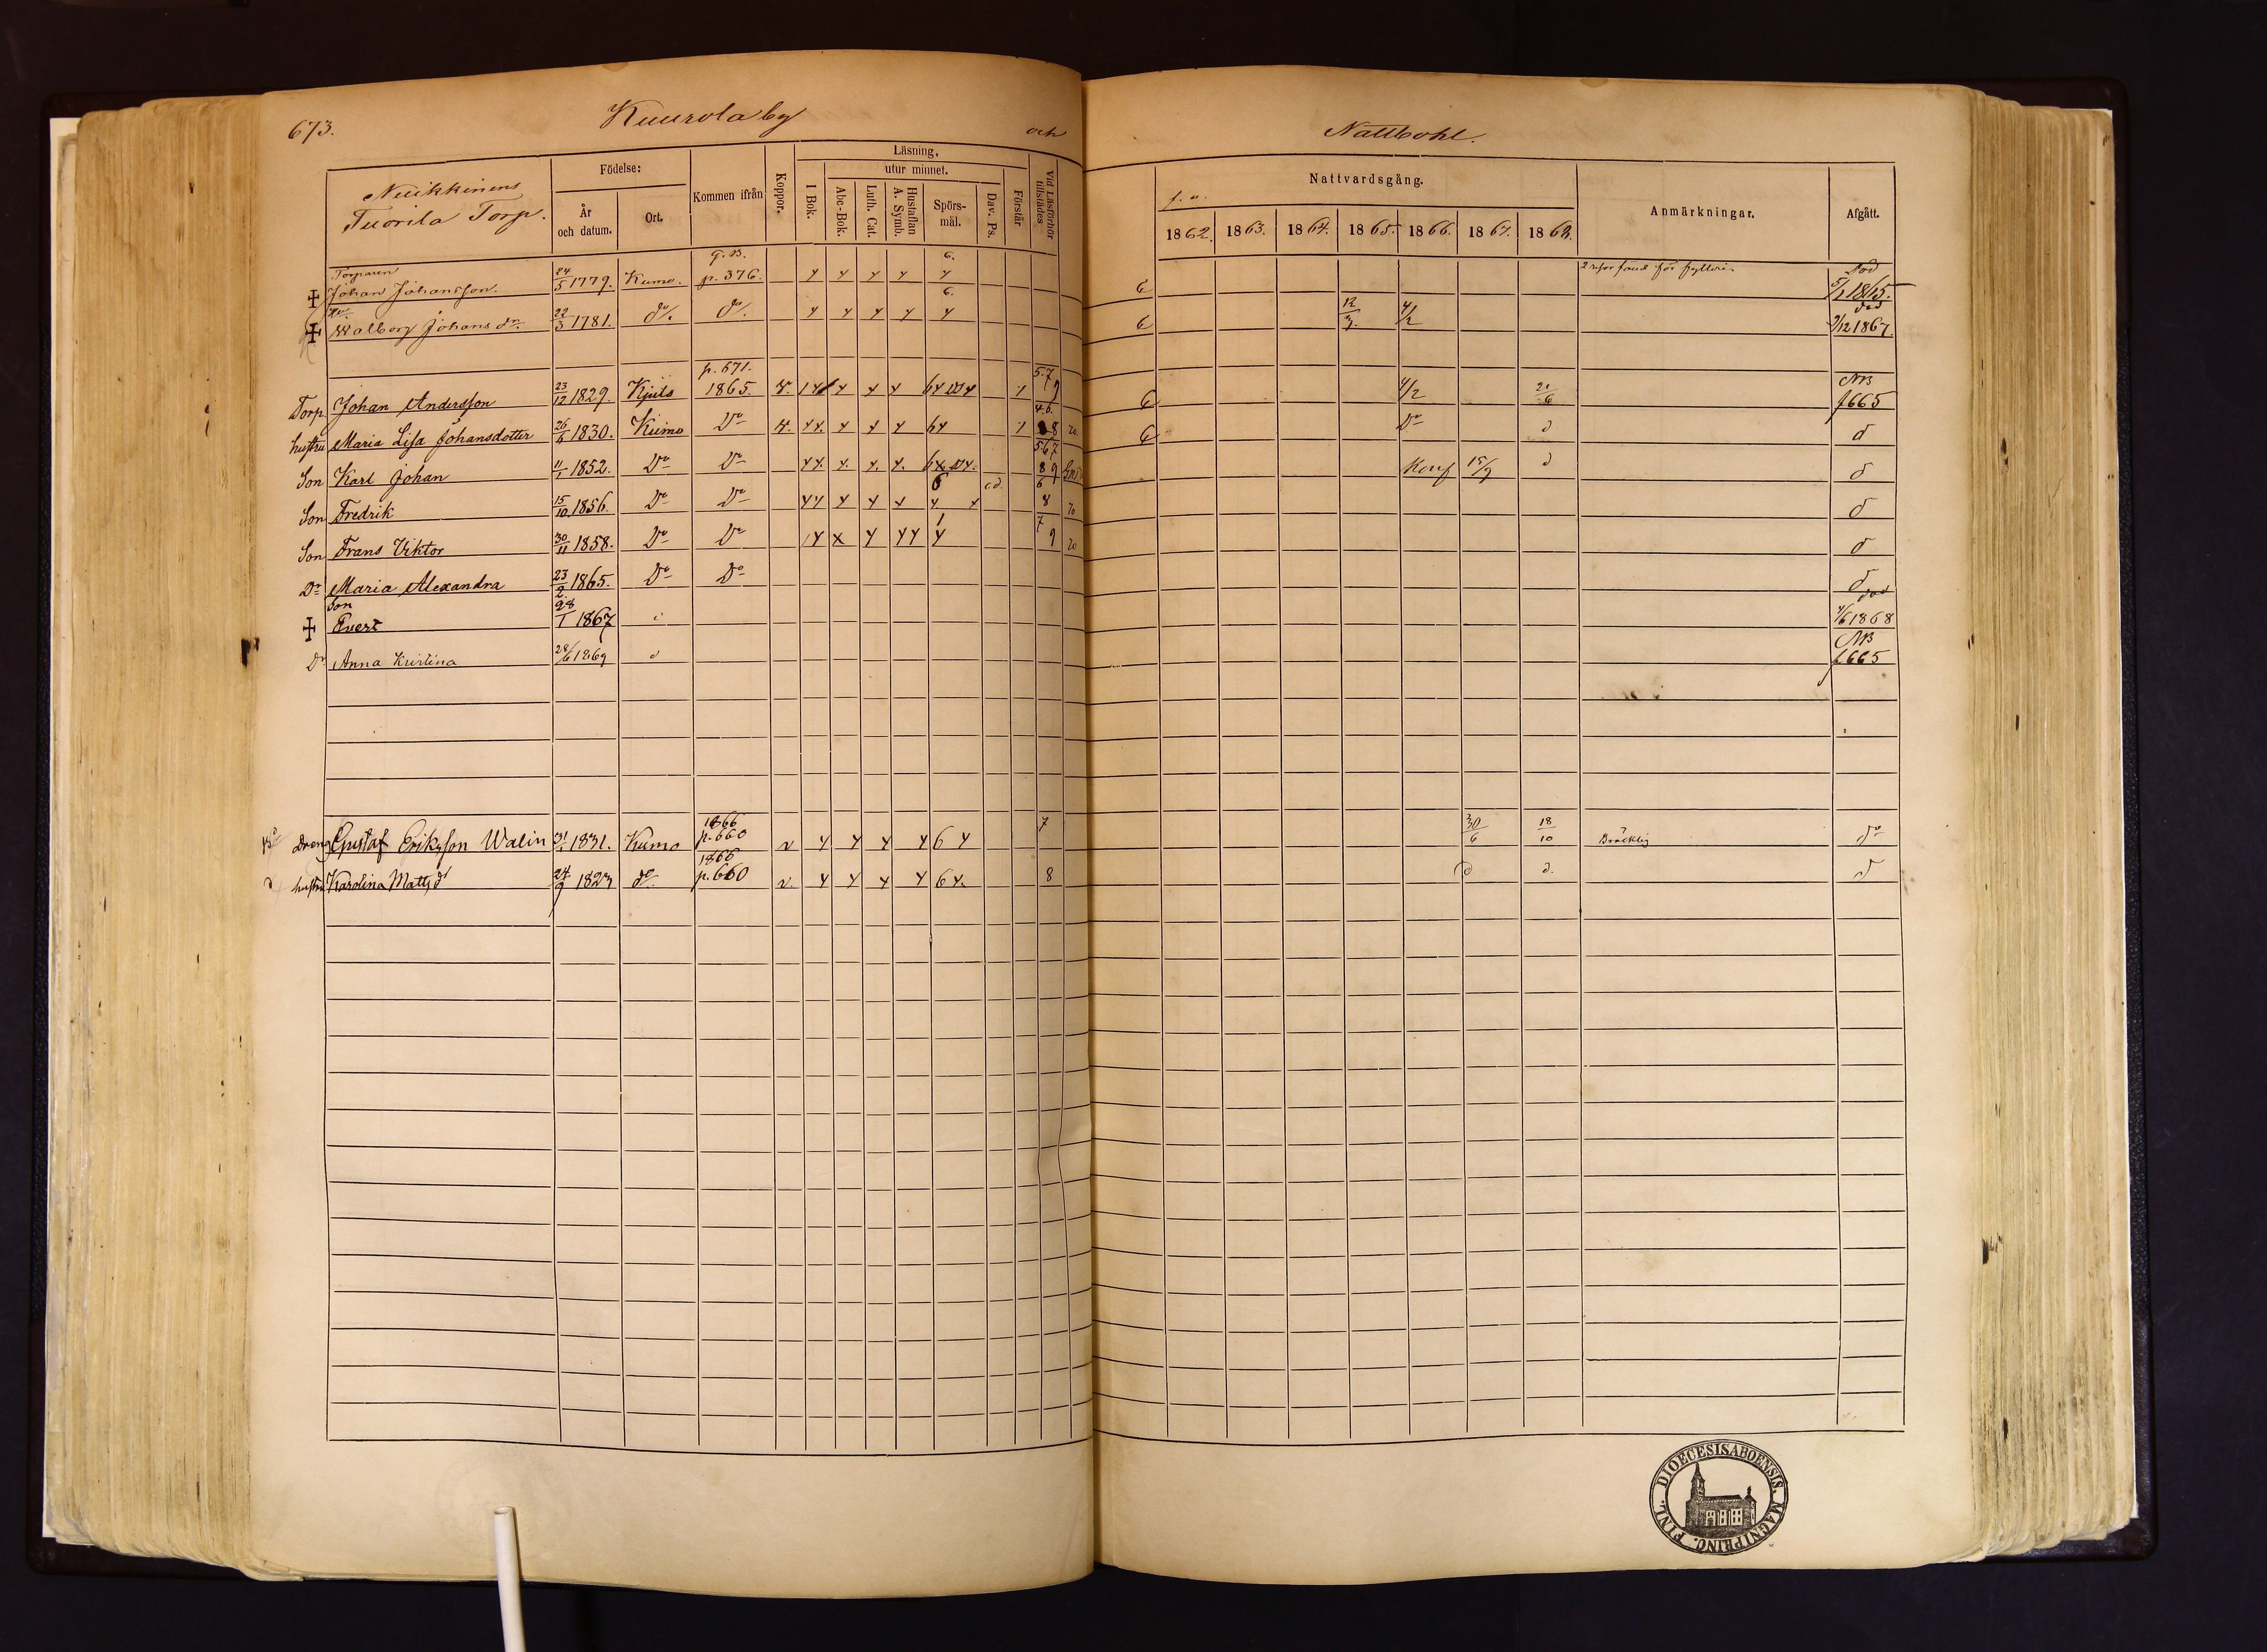 673.
Kuurola by
och
Nuikkinens
Tuorila Torp.
Födelse:
År och datum.
Ort.
Kommen ifrån
Koppor.
Läsning,
I Bok.
utur minnet.
Abc-Bok.
Luth. Cat.
Hustaflan A. Symb.
Spörs-mål.
Dav. Ps.
Förstår
Vid Läsförhör tillstädes
Torparen
Johan Johansson. 24/5 1779. Kumo. G.B. p. 376. 6.
Hu.
Walborg Johans dr. 22/3 1781. do/. do/. 6.
Torp. Johan Andersson 23/12 1829. p. 671. 1865. 5.7 9
hustru Maria Lisa Johansdotter 26/6 1830. Kumo Do 4.6. 8 70.
Son Karl Johan 11/1 1852. Do Do 5 6 7 8 9
Son Fredrik 15/10 1856. Do Do 6 8 70
Son Frans Viktor 30/11 1858. Do Do 7 9 70
Dr Maria Alexandra 23/2. 1865. Do Do
Son
Evert 28/1 1867
Dr Anna Kristina 28/6 1869 d
Dreng Gustaf Eriksson Walin 31/1 1831. Kumo 1866 p. 660 v 6 7
hustru Karolina Matts dr 24/9 1827 do 1866 p. 660 v. 6 8
Nattbohl.
Nattvardsgång.
Anmärkningar.
Afgått.
f. u.
1862. 1863. 1864. 1865. 1866. 1867. 1868.
6 Död 5/1 1865.
6 12/3. 4/2 död 2/12 1867.
6 4/2 21/6 NB f 665
6 Do d d
Konf 15/9 d d
d
d
d
död 4/6 1868
NB f 665
30/6 18/10 Bräcklig do
d d. d
DIOECESIS ABOENSIS. MAGNI PRINC. FINL.